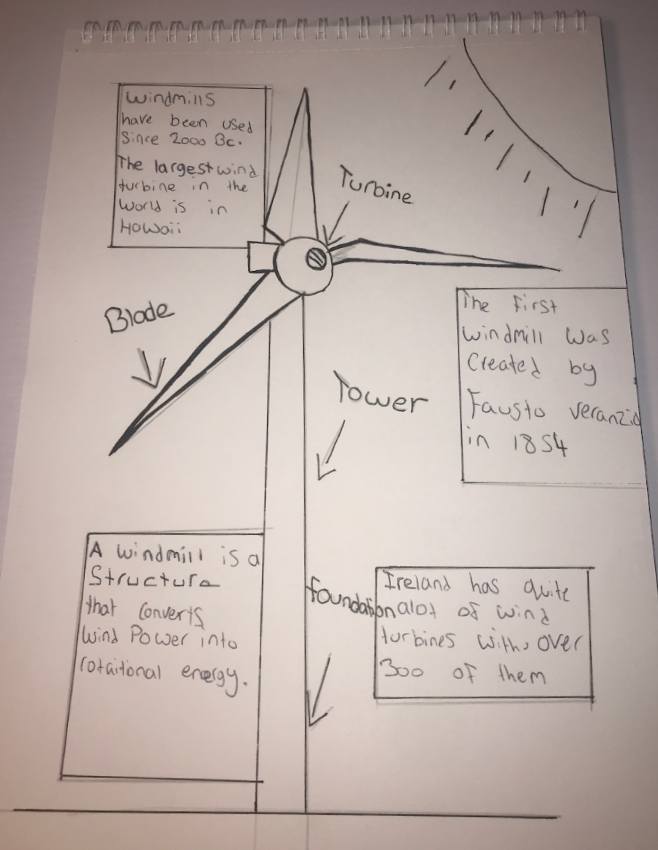 Windmills
have been used
Since 2000 Bc.
The largest wind
turbine in the
World is in
Howaii
Turbine
Blade
The first
windmill was
Created by
Fausto veranzio
in 1854
Tower
A windmill is a
Structure
that converts
wind Power into
rotaitional energy.
foundation
Ireland has quite
alot of wind
turbines with over
300 of them